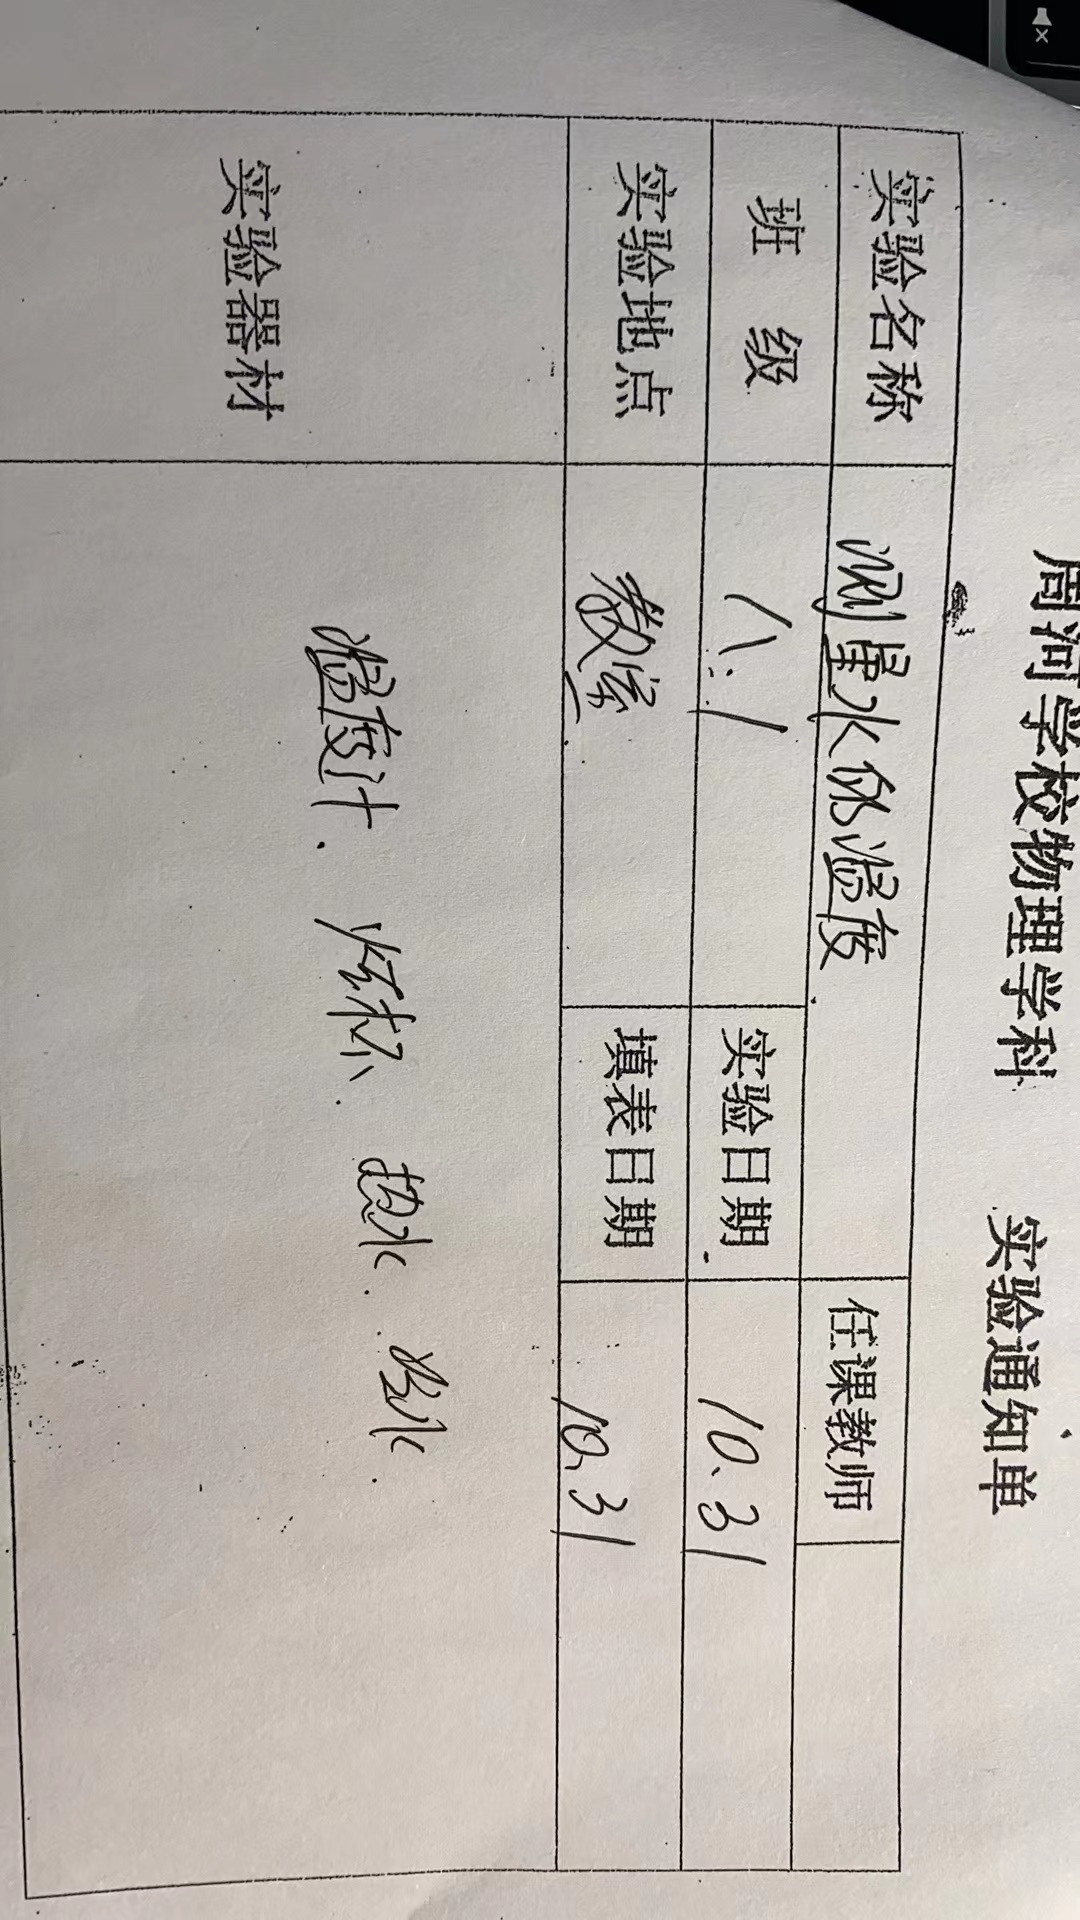 周河学校物理学科 实验通知单
实验名称 测量水的温度 任课教师
班 级 八.1 实验日期 10.31
实验地点 教室 填表日期 10.31
实验器材 温度计. 烧杯. 热水. 冷水.